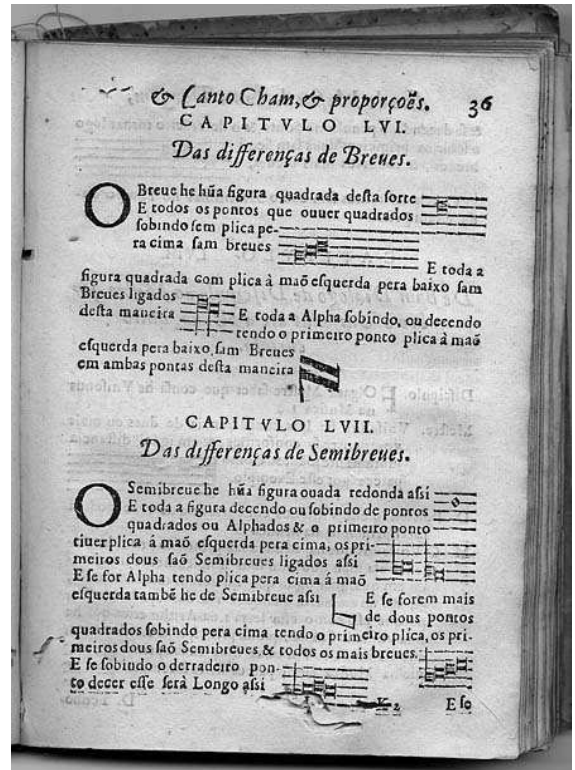 & Canto Cham, & proporçoẽs. 36
CAPITVLO LVI.
Das differenças de Breues.
O Breue he hũa figura quadrada desta sorte
E todos os pontos que ouuer quadrados
sobindo sem plica pe-
ra cima sam breues
E toda a
figura quadrada com plica à maõ esquerda pera baixo sam
Breues ligados
desta maneira E toda a Alpha sobindo, ou decendo
tendo o primeiro ponto plica à maõ
esquerda pera baixo, sam Breues
em ambas pontas desta maneira
CAPITVLO LVII.
Das differenças de Semibreues.
O Semibreue he hũa figura ouada redonda assi
E toda a figura decendo ou sobindo de pontos
quadrados ou Alphados & o primeiro ponto
tiuer plica á maõ esquerda pera cima, os pri-
meiros dous saõ Semibreues ligados assi
E se for Alpha tendo plica pera cima á maõ
esquerda tambẽ he de Semibreue assi E se forem mais
de dous pontos
quadrados sobindo pera cima tendo o primeiro plica, os pri-
meiros dous saõ Semibreues, & todos os mais breues.
E se sobindo o derradeiro pon-
to decer esse será Longo assi
K 2 E se